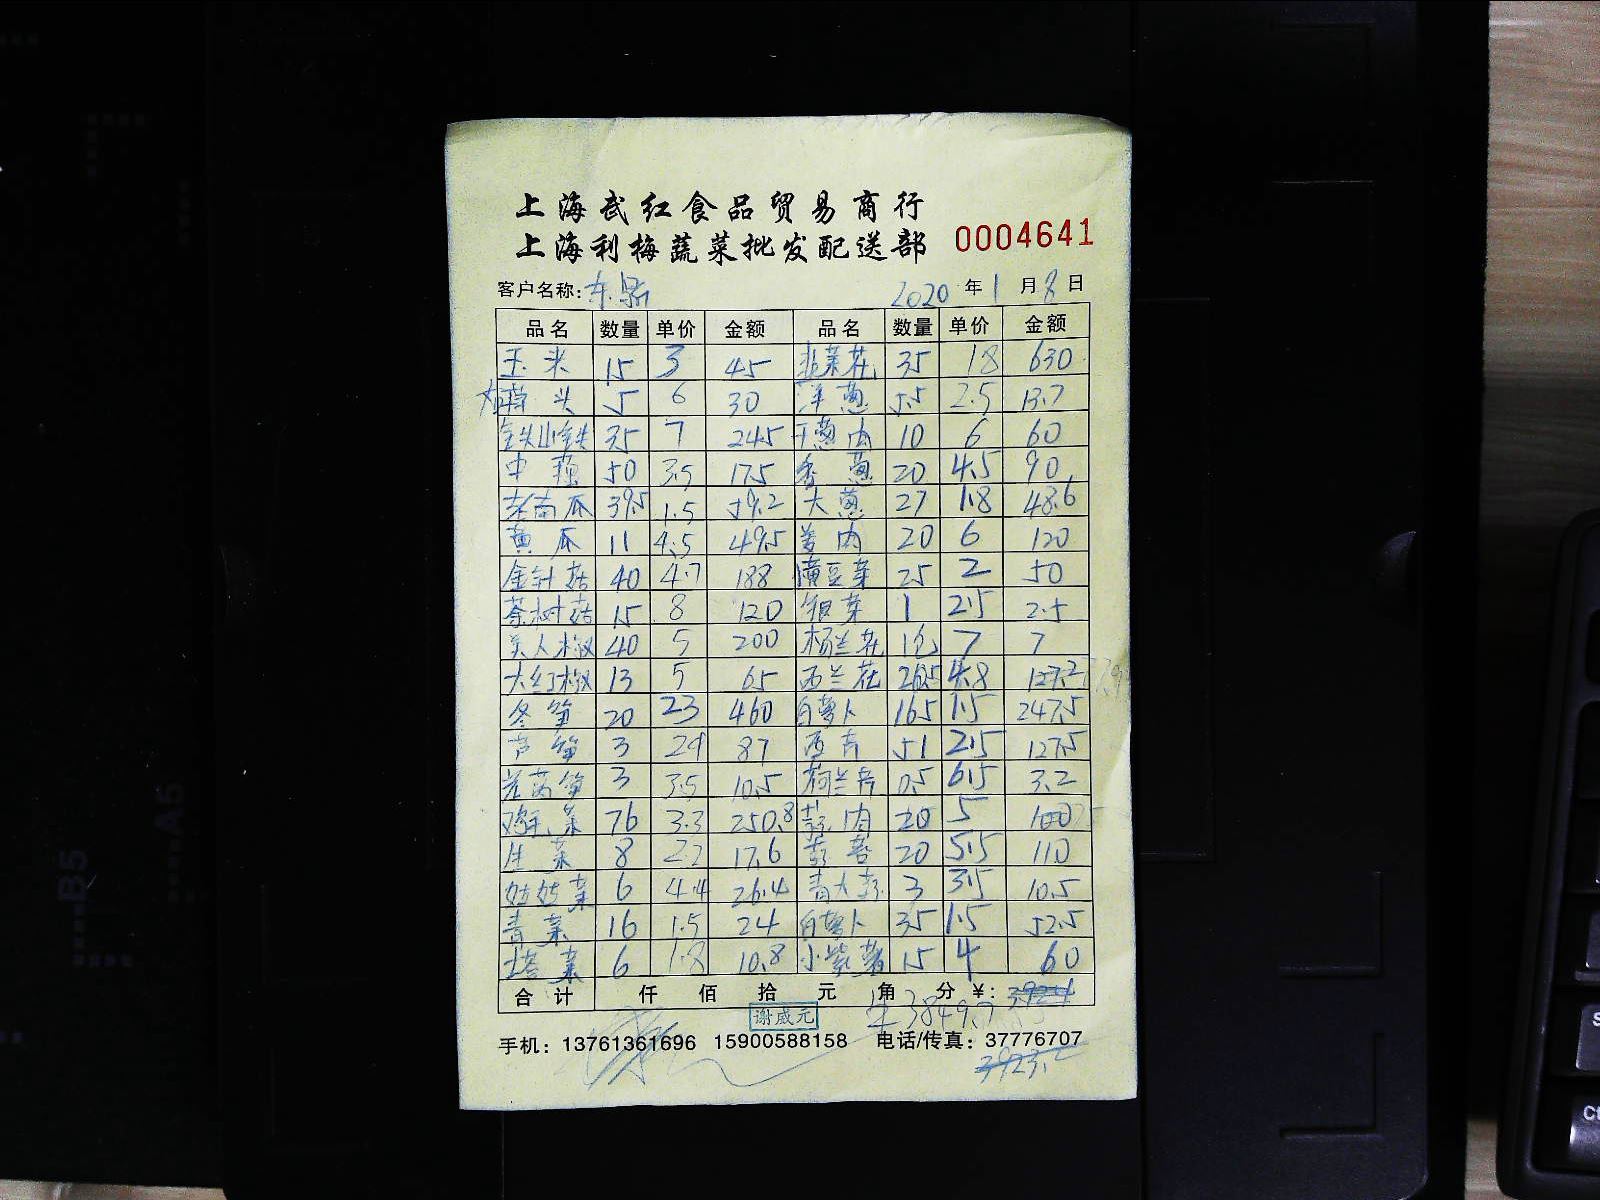 上海武红食品贸易商行
上海利梅蔬菜批发配送部 0004641
客户名称: 2020 年 1 月 8 日
品名 数量 单价 金额 品名 数量 单价 金额
玉米 15 3 45 韭菜花 35 18 630
头 5 6 30 洋葱 5.5 2.5 13.7
铁山 35 7 245 干葱肉 10 6 60
中 50 3.5 175 香葱 20 4.5 90
南瓜 39.5 1.5 59.2 大葱 27 1.8 48.6
黄瓜 11 4.5 49.5 姜肉 20 6 120
金针菇 40 4.7 188 黄豆芽 25 2 50
茶树菇 15 8 120 银芽 1 2.5 2.5
美人椒 40 5 200 兰花 1 7 7
大红椒 13 5 65 西兰花 26.5 4.8 127.2
冬笋 20 23 460 白萝卜 165 1.5 247.5
芦笋 3 29 87 西芹 51 2.5 127.5
莴笋 3 3.5 10.5 兰 0.5 6.5 3.2
鸡毛菜 76 3.3 250.8 肉 20 5 100
生菜 8 2.2 17.6 20 5.5 110
娃娃菜 6 4.4 26.4 青大 3 3.5 10.5
青菜 16 1.5 24 白萝卜 35 1.5 52.5
塔菜 6 1.8 10.8 小紫薯 15 4 60
合计 仟 佰 拾 元 角 分 ¥:
谢威元 3849.7
手机：13761361696 15900588158 电话/传真：37776707
3923.2